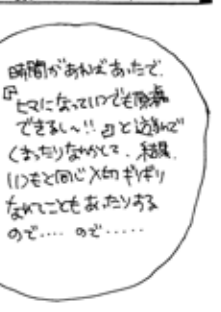 時間があればあったで、
『ヒマになっていつでも原稿
できるし~!!』と遊んで
くさったりなんかして、結果、
いつもと同じ〆切ギリギリ
なんてこともあったりする
ので‥‥ ので‥‥‥